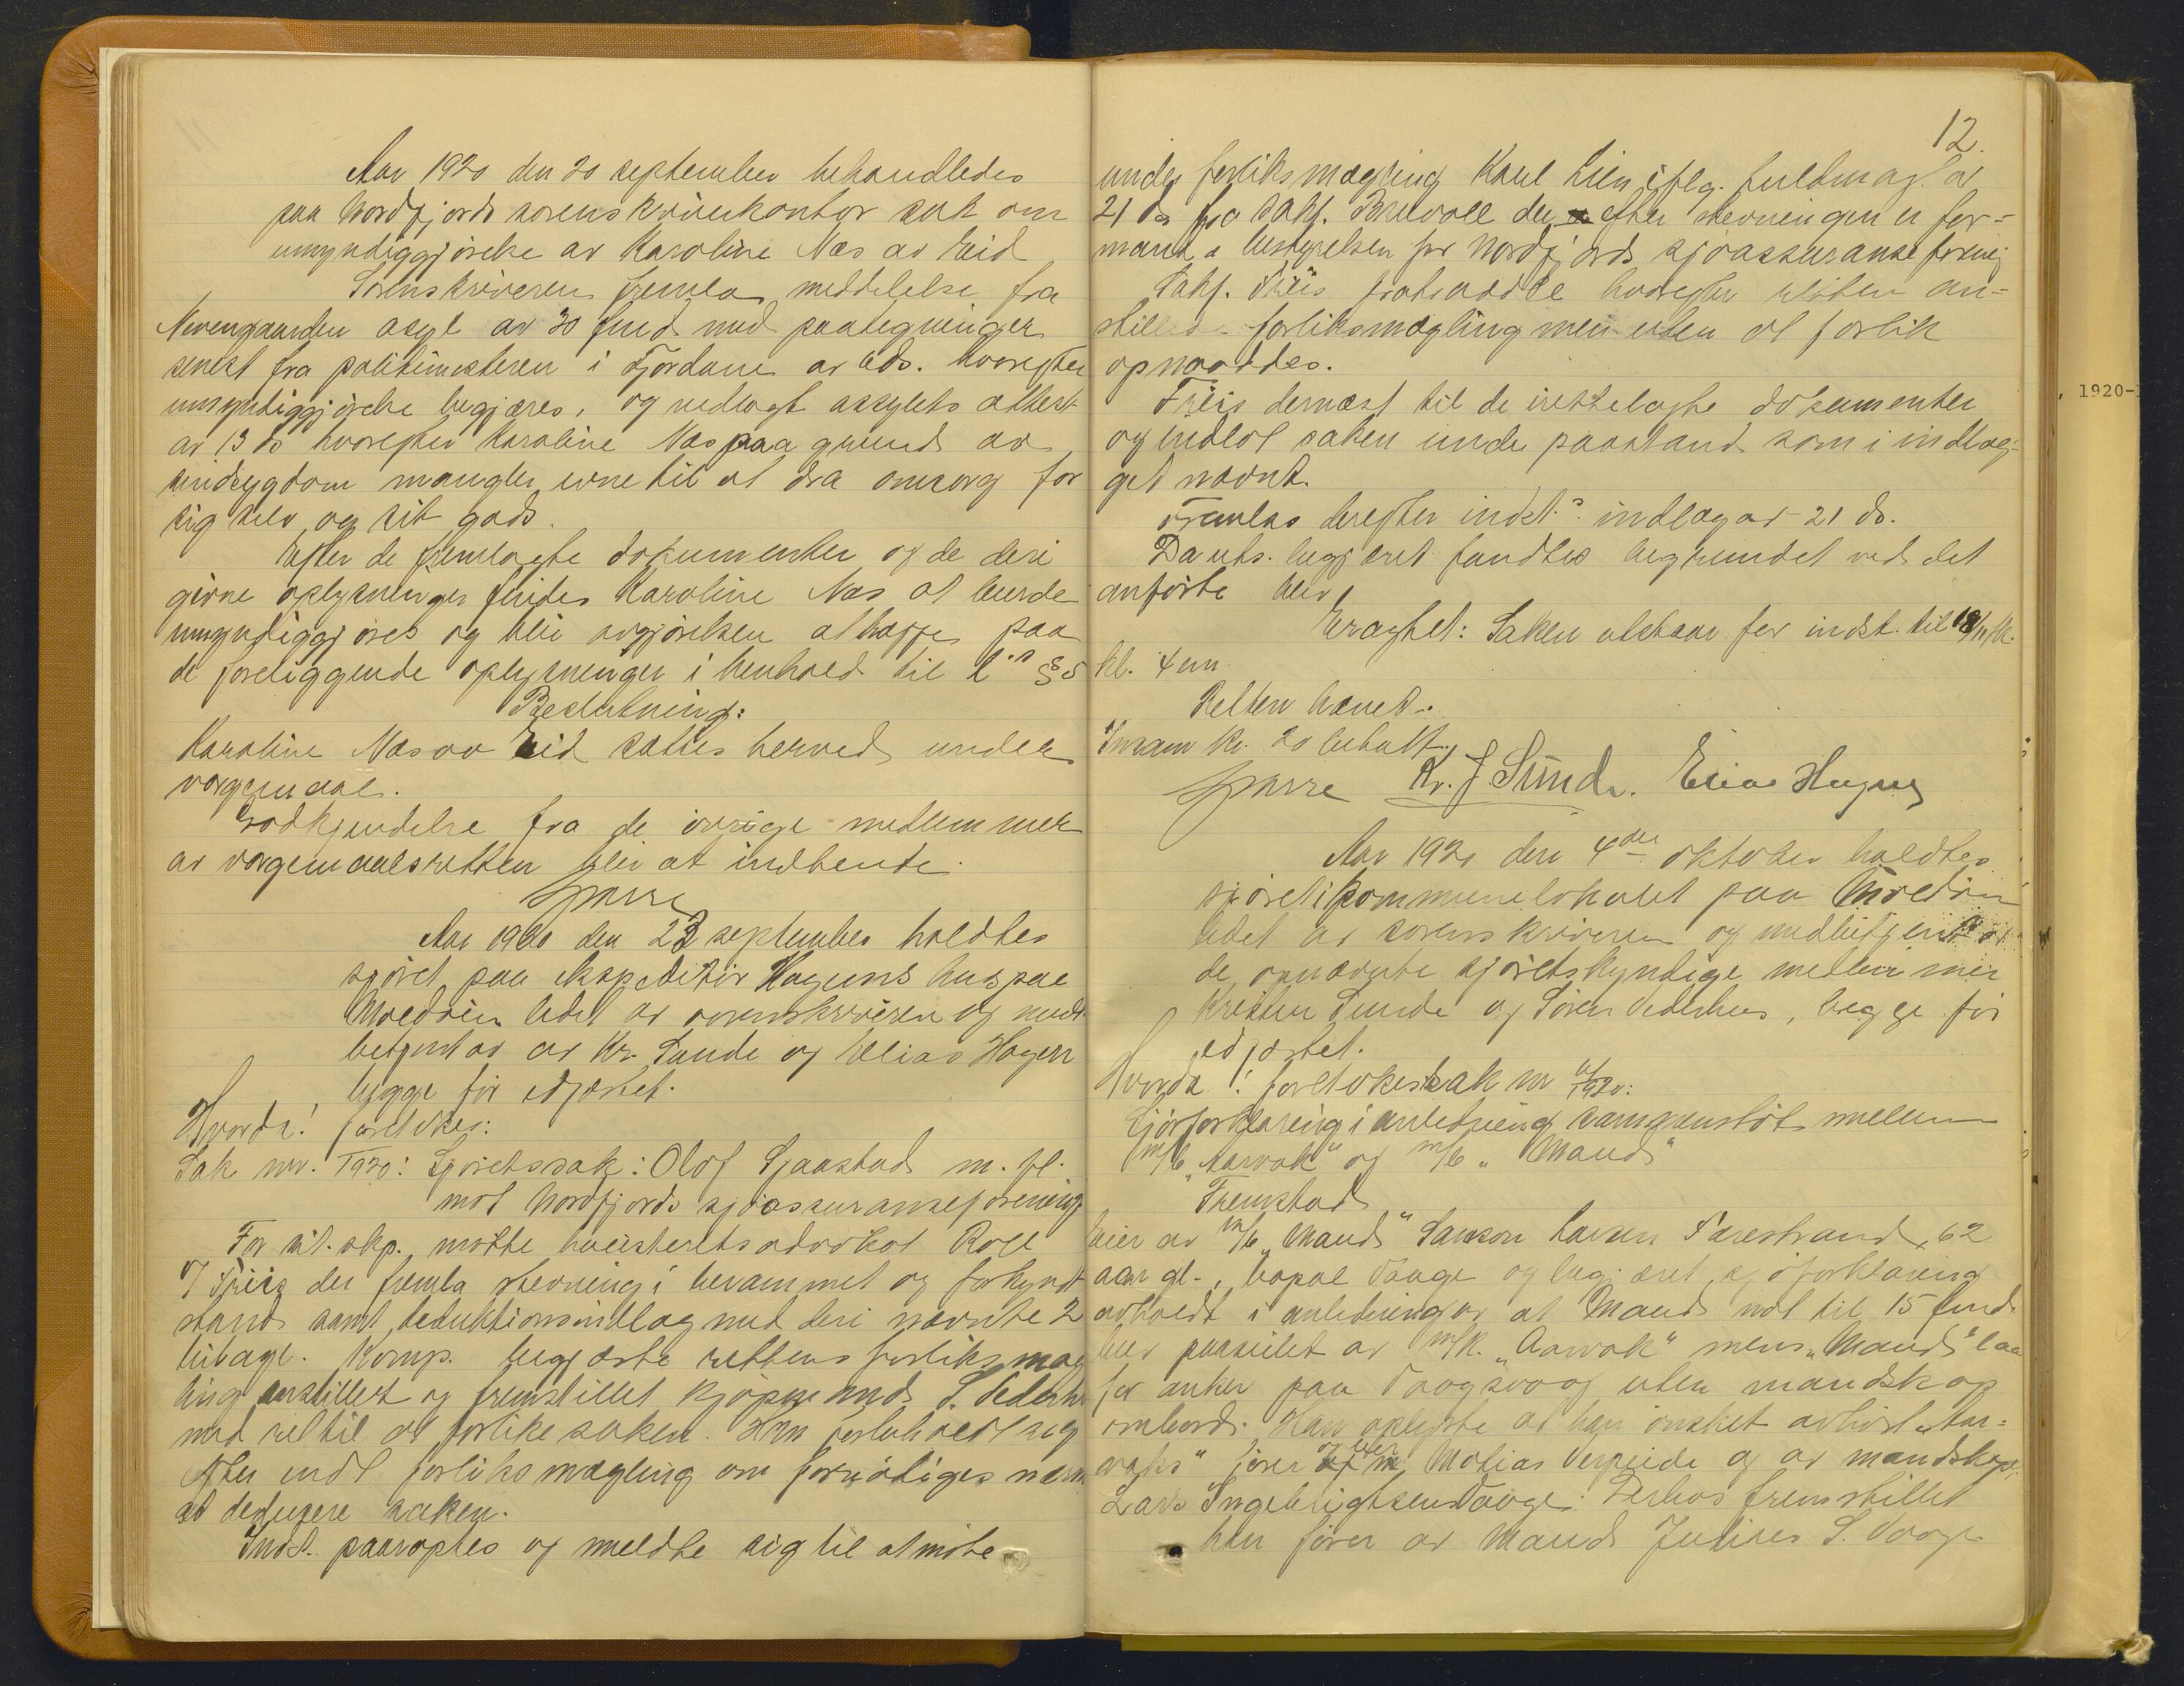 Aar 1920 den 20 september behandledes
paa Nordfjords sorenskriverkontor sak om
umyndiggjørelse av Karoline Næs av Eid
Sorenskriveren fremla meddelelse fra
Nevengaarden asyl av 30 f.md. med paategninger
senest fra politimesteren i Fjordane av ds. hvorefter
umyndiggjørelse begjæres, og vedlagt asylets attest
av 13 ds hvorefter Karoline Næs paa grund av
sindsygdom mangler evne til at dra omsorg for
sig selv og sit gods.
Efter de fremlagte dokumenter og de deri
givne oplysninger findes Karoline Næs at burde
umyndiggjøres og blir avgjørelsen at træffe paa
de foreliggende oplysninger i henhold til l.s § 5
Beslutning:
Karoline Næs av Eid sættes herved under
vergemaal.
Godkjendelse fra de øvrige medlemmer
av vergemaalsretten blir at indhente.
Sparre
Aar 1920 den 23 september holdtes
sjøret paa ekspeditør Hagens hus paa
Moldøen ledet av sorenskriveren og med-
betjent av av Kr. Sunde og Elias Hagen
begge før edfæstet.
Hvorda! foretokes:
Sak nr. /1920: Sjøretssak: Olof Sjaastad m. fl.
mot Nordfjords sjøassuranseforening
For cit. skp. møtte høiesteretsadvokat Roll
v/ Friis der fremla stevning i berammet og forkyndt
stand samt deduktionsindlæg med deri nævnte 2
bilage. Komp. begjærte rettens forliksmæg
ling anstillet og fremstillet kjøpmand S. Vederhus
med ret til at forlike saken. Han forbeholdt sig
efter endt forliksmægling om fornødiges nærm
at deducere saken.
Indst. paaroptes og meldte sig til at møte
12.
under forliksmægling Karl Lien iflg. fuldmagt av
21 ds fra sakf. Brevoll der efter stevningen er for-
mand i bestyrelsen for Nordfjords sjøassuranseforenig
Sakf. Friis fratraadte hvorefter retten an-
stilled forliksmægling men uten at forlik
opnaaddes.
Friis dernæst til de irettelagte dokumenter
og indlot saken under paastand som i indlæg-
get nævnt.
Fremlas derefter indst.s indlæg av 21 ds.
Da uts. begjæret fandtes begrundet ved det
anførte blev
Eragtet: Saken utstaar for indst. til 18/11 fk.
kl. 4 em
Retten hævet.
Imram kr. 20 betalt.
Sparre Kr. J Sund. Elias Hagen
Aar 1920 den 4de oktober holdtes
sjøret i kommunelokalet paa Moldøen
ledet av sorenskriveren og medbetjent av
de opnævnte sjøretskyndige medlemmer
Kristen Sunde og Søren Vederhus, begge før
edfæstet.
Hvorda! foretokes sak nr /1920:
Sjøforklaring i anledning sammenstøt mellem
m/b "Aarvak" og m/b "Maud"
Fremstod
eier av m/b "Maud" Samson Larsen Farestrand, 62
aar gl., bopæl Vaage og begjæret sjøforklaring
avholdt i anledning av at Maud nat til 15 f.md.
blev paaseilet av m/k. "Aarvak" mens "Maud" laa
for anker paa Vaagsvaag uten mandskap
ombord. Han oplyste at han ønsket avhørt "Aar-
vaks" fører og eier Matias Verpeide og av mandskap.
Lars Ingebrigtsen Vaage. Derhos fremstillet
han fører av Maud Julius S. Vaage